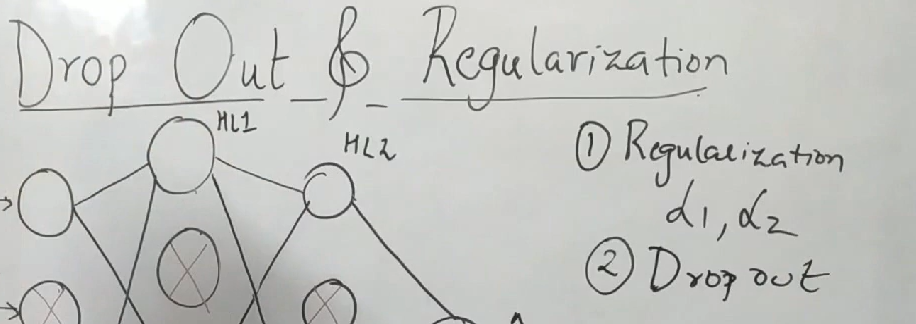 Drop Out & Regularization
HL1
HL2
① Regularization
α1, α2
② Drop out